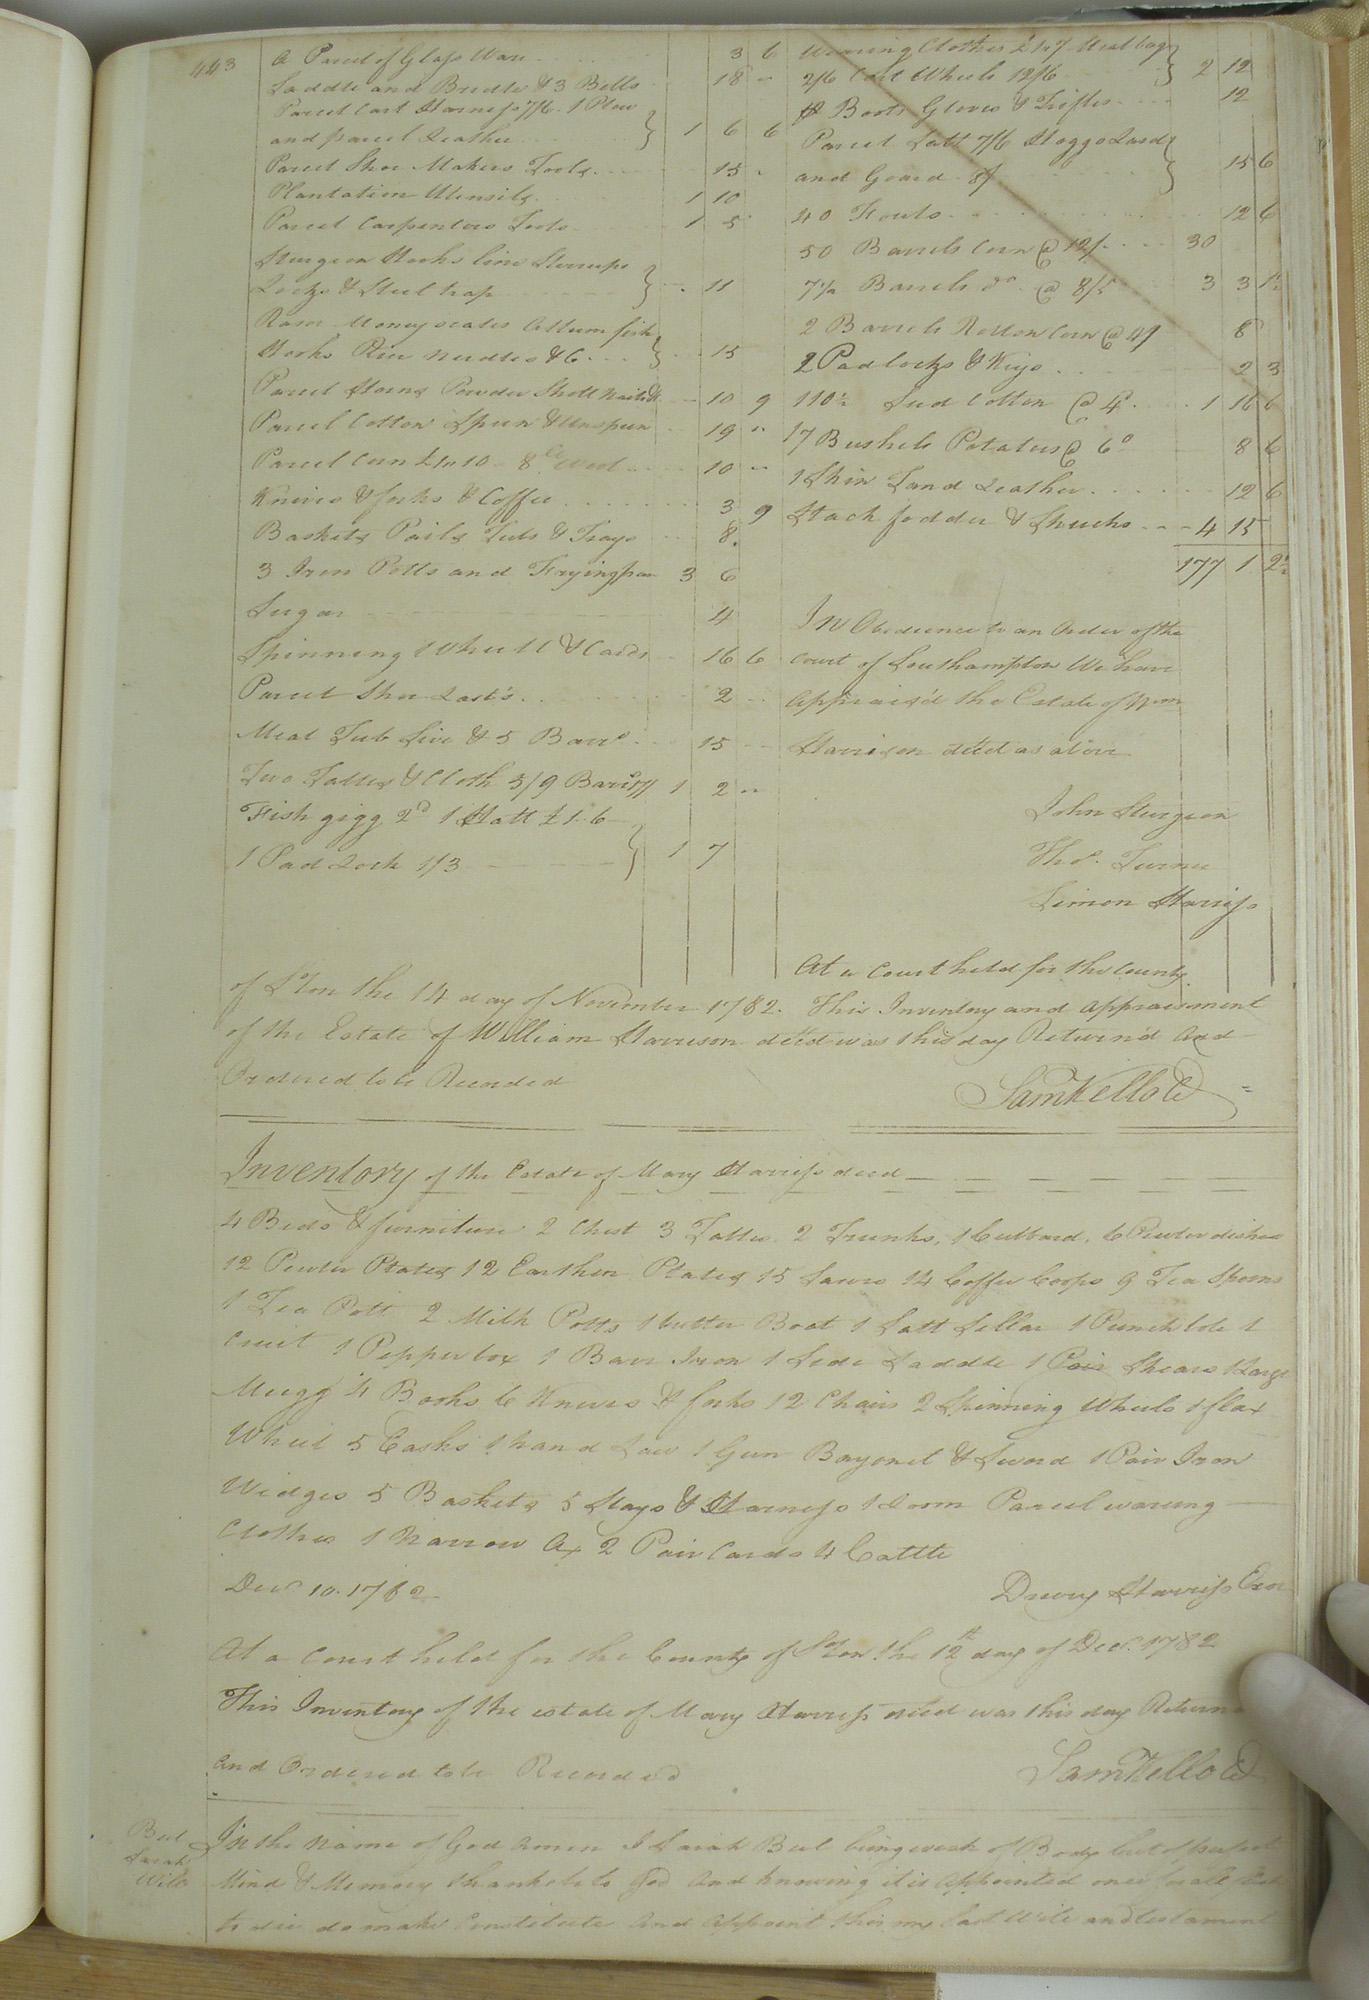 443
A Parcel of Glass Ware 3 6
Saddle and Bridle & 3 Bells 18
Parcel Cart Harness 7/6 1 Plow
and parcel Leather 1 6 6
Parcel Shoe Makers Tools 15
Plantation Utensils 1 10
Parcel Carpenters Tools 1 5
Sturgeon Hooks line Sterrups
Locks & Steel trap 11
Rasor Money scales Allum fish
Hooks Needles &C 15
Parcel Horns Powder Shott 10 9
Parcel Cotton Spun & Unspun 19
Parcel Corn 8 Wool 10
Knives & forks & Coffee 3 9
Baskets Pails Tubs & Trays 8
3 Iron Potts and Fryingpan 3 6
Sugar 4
Spinning Wheell & Cards 16 6
Parcel Shoe Last's 2
Meal Tub Sive & 5 Barrs 15
Two Tables & Cloth 5/9 1 2
Fish gigg 2d 1 Hatt £1.6
1 Pad Lock 1/3 1 7
Wearing Clothes Meal bag
2/6 Cart Wheels 12/6 2 12
Boots Gloves & Trifles 12
Parcel Salt 7/6 Hoggs Lard
and Goard 8/ 15 6
40 Fouls 12 6
50 Barrels Corn @ 12/ 30
7½ Barrels do @ 8/5 3 3 1½
2 Barrels Rotton Corn @ 4/ 8
2 Padlocks & Keys 2 3
110½ Seed Cotton @ 4d 1 16
17 Bushels Potatoes @ 6d 8 6
1 Skin Tand Leather 12 6
Stack fodder & Shucks 4 15
177 1 2½
In Obedience to an Order of the
Court of Southampton We have
Appraised the Estate of Wm
Harrison deced as above
John Sturgeon
Thos. Turner
Simon Harriss
At a Court held for the County
of Ston the 14 day of November 1782. This Inventory and appraisment
of the Estate of William Harrison deced was this day Return'd And
Ordered to be Recorded
Saml Kello Cl
Inventory of the Estate of Mary Harriss deced
4 Beds & furniture 2 Chest 3 Tables 2 Trunks, 1 Cubbard, 6 Pewter dishes
12 Pewter Plates 12 Earthen Plates 15 14 Coffee Coops 9 Tea Spoons
1 Tea Pott 2 Milk Potts 1 butter Boat 1 Salt Sellar 1 Punch bole 1
Cruit 1 Pepper box 1 Barr Iron 1 Side Saddle 1 Pair Shears 1 Large
Mugg 4 Books 6 Knives & forks 12 Chairs 2 Spinning Wheels 1 flax
Wheel 5 Casks 1 hand Saw 1 Gun Bayonet & Sword 1 Pair Iron
Widges 5 Baskets 5 Slays & Harness 1 Loom Parcel waring
Clothes 1 Narrow Ax 2 Pair Cards 4 Cattle
Decr 10. 1782
Drewry Harriss Exor
At a Court held for the County of Ston the 12th day of Decr. 1782
This Inventory of the estate of Mary Harriss deced was this day Return
And Ordered to be Recorded
Saml Kello Cl
Bel
Sarah
Will
In the Name of God Amen I Sarah Bel being weak of Body but of perfect
Mind & Memory thanks be to God And knowing it is Appointed once for all
to die do make Constitute And Appoint this my last Will and testament